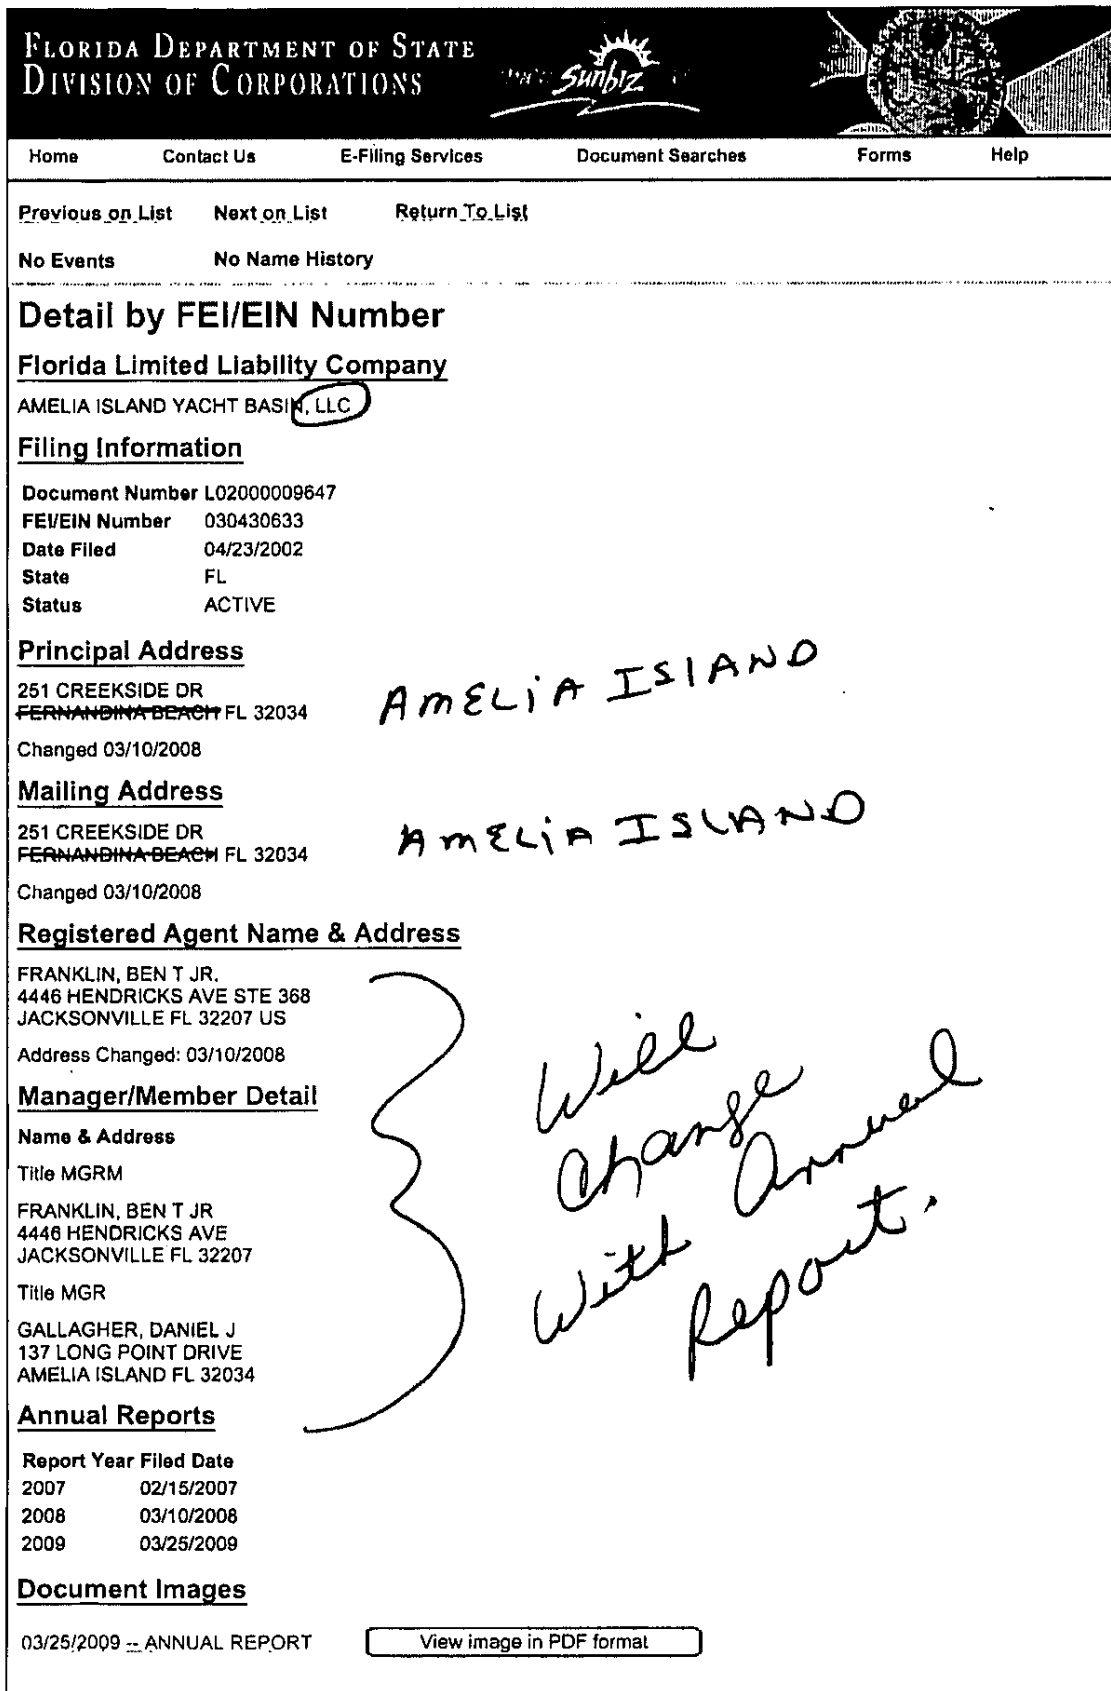 FLORIDA DEPARTMENT OF STATE
DIVISION OF CORPORATIONS
Sunbiz
Home Contact Us E-Filing Services Document Searches Forms Help
Previous on List Next on List Return To List
No Events No Name History
Detail by FEI/EIN Number
Florida Limited Liability Company
AMELIA ISLAND YACHT BASIN, LLC
Filing Information
Document Number L02000009647
FEI/EIN Number 030430633
Date Filed 04/23/2002
State FL
Status ACTIVE
Principal Address
251 CREEKSIDE DR
FERNANDINA BEACH FL 32034
AMELIA ISLAND
Changed 03/10/2008
Mailing Address
251 CREEKSIDE DR
FERNANDINA BEACH FL 32034
AMELIA ISLAND
Changed 03/10/2008
Registered Agent Name & Address
FRANKLIN, BEN T JR.
4446 HENDRICKS AVE STE 368
JACKSONVILLE FL 32207 US
Address Changed: 03/10/2008
Manager/Member Detail
Name & Address
Title MGRM
FRANKLIN, BEN T JR
4446 HENDRICKS AVE
JACKSONVILLE FL 32207
Title MGR
GALLAGHER, DANIEL J
137 LONG POINT DRIVE
AMELIA ISLAND FL 32034
Will
Change
With Annual
Report.
Annual Reports
Report Year Filed Date
2007 02/15/2007
2008 03/10/2008
2009 03/25/2009
Document Images
03/25/2009 -- ANNUAL REPORT View image in PDF format